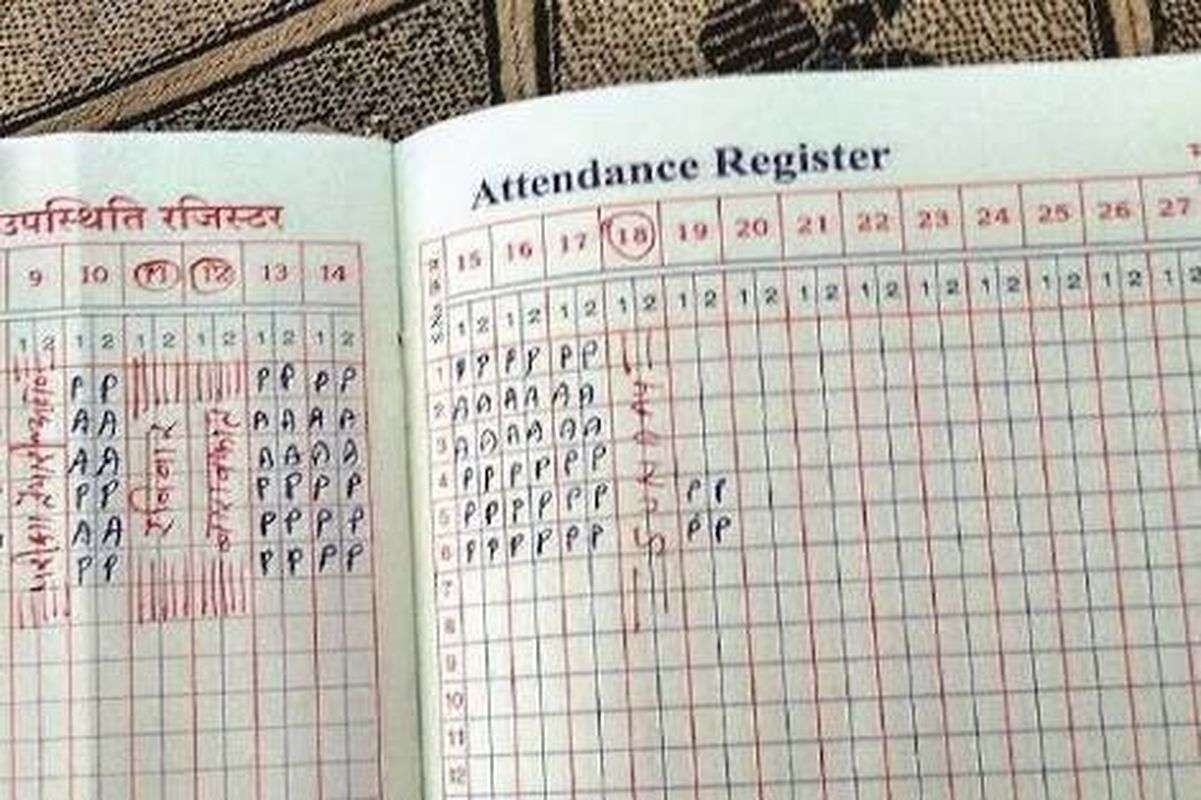 उपस्थिति रजिस्टर
9 10 11 12 13 14
1 2 1 2 1 2 1 2 1 2 1 2
P P P P P P
A A A A A A
A A A A A A
P P P P P P
A A P P P P
P P P P P P
रविवार
Attendance Register
15 16 17 18 19 20 21 22 23 24 25 26 27
1 2 1 2 1 2 1 2 1 2 1 2 1 2 1 2 1 2 1 2 1 2 1 2 1 2
1 P P P P P P
2 A A A A A A
3 A A A A A A
4 P P P P P P
5 P P P P P P P P
6 P P P P P P P P
7
8
9
10
11
12
SUNDAY